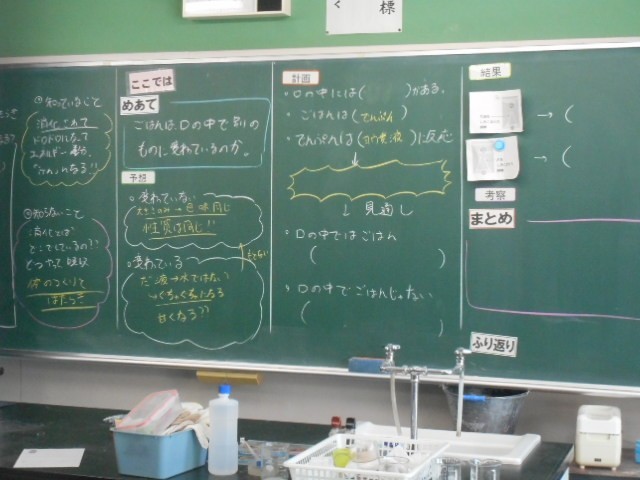 標
く
①知っていること
消化されて
ドロドロになって
②知らないこと
消化とは
どこでしているの？！
体のつくりと
はたらき
ここでは
めあて
ごはんは、口の中で別の
ものに変わているのか。
予想
○変わていない
大きさのみ→色味同じ
性質は同じ!!
○変わている
だ液→水ではない
→ぐちゃぐちゃになる
甘くなる??
計画
・口の中には( )がある。
・ごはんは(でんぷん)
・でんぷんは(ヨウ素液)に反応
↓見通し
・口の中ではごはん
( )
・口の中でごはんじゃない
( )
結果
→(
→(
考察
まとめ
ふり返り